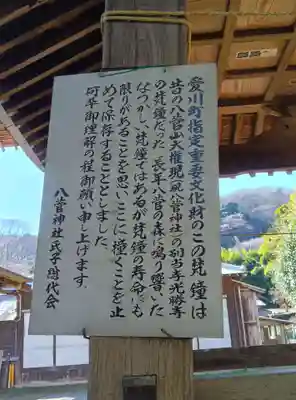 愛川町指定重要文化財のこの梵鐘は
昔の八菅山大権現(現八菅神社)の別当寺光勝寺
の梵鐘だった 長年八菅の森に鳴り響いた
なつかしい梵鐘ではあるが梵鐘の寿命にも
限りがあることを思いここに撞くことを止
めて保存することとしました
何卒御理解の程御願い申し上げます
八菅神社氏子総代会